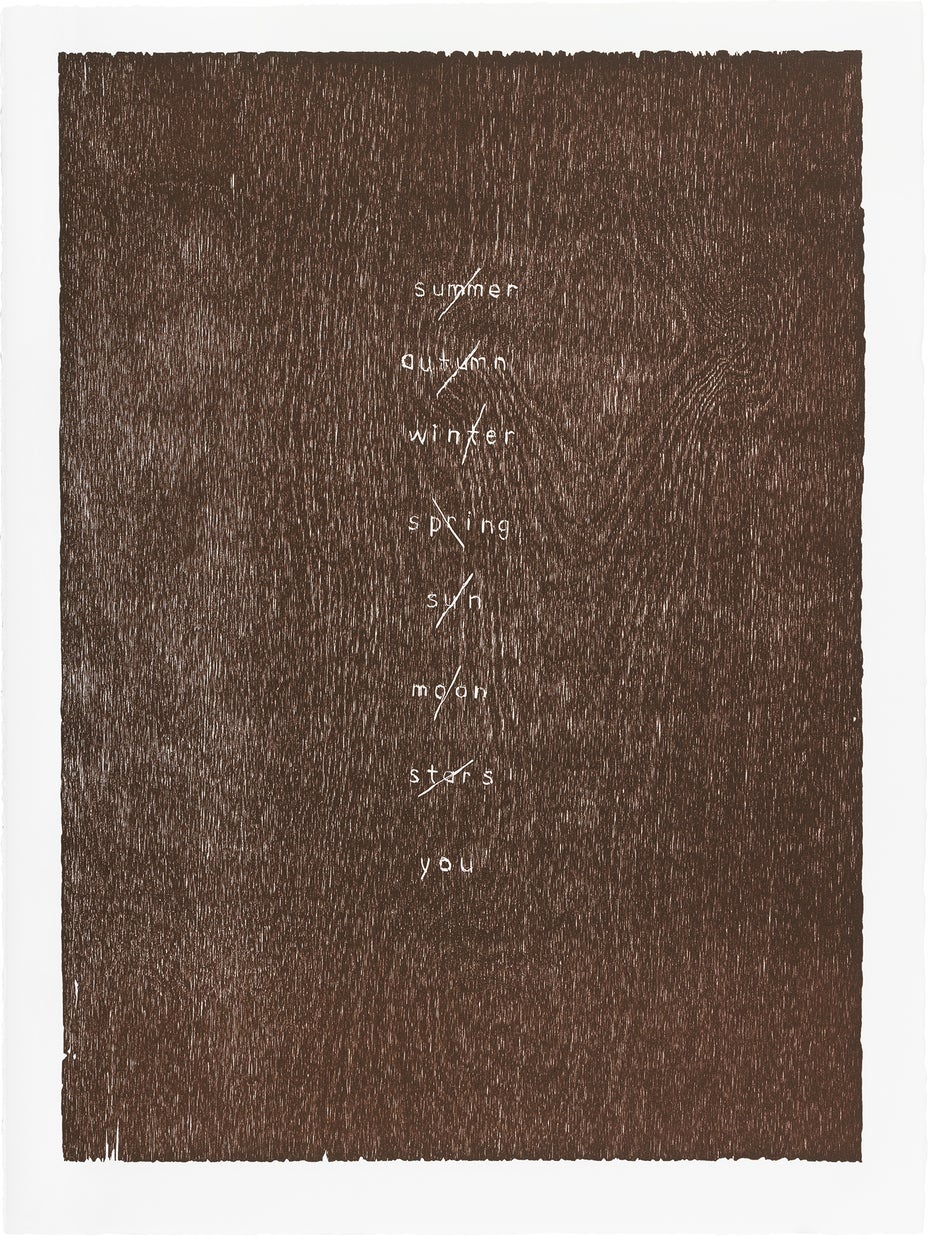 summer
autumn
winter
spring
sun
moon
stars
you